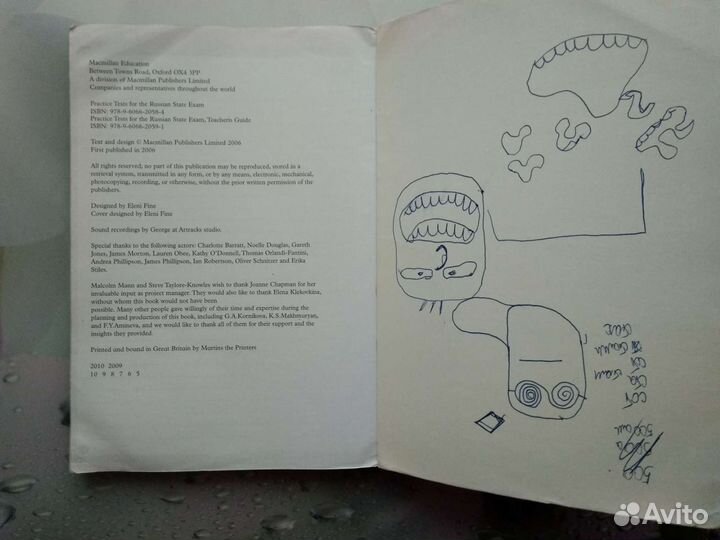 Macmillan Education
Between Towns Road, Oxford OX4 3PP
A division of Macmillan Publishers Limited
Companies and representatives throughout the world
Practice Tests for the Russian State Exam
ISBN: 978-9-6066-2058-4
Practice Tests for the Russian State Exam, Teacher's Guide
ISBN: 978-9-6066-2059-1
Text and design © Macmillan Publishers Limited 2006
First published in 2006
All rights reserved; no part of this publication may be reproduced, stored in a
retrieval system, transmitted in any form, or by any means, electronic, mechanical,
photocopying, recording, or otherwise, without the prior written permission of the
publishers.
Designed by Eleni Fine
Cover designed by Eleni Fine
Sound recordings by George at Artracks studio.
Special thanks to the following actors: Charlotte Barratt, Noelle Douglas, Gareth
Jones, James Morton, Lauren Obee, Kathy O'Donnell, Thomas Orlandi-Fantini,
Andrea Phillipson, James Phillipson, Ian Robertson, Oliver Schnitzer and Erika
Stiles.
Malcolm Mann and Steve Taylore-Knowles wish to thank Joanne Chapman for her
invaluable input as project manager. They would also like to thank Elena Klekovkina,
without whom this book would not have been
possible. Many other people gave willingly of their time and expertise during the
planning and production of this book, including G.A.Kornikova, K.S.Makhmuryan,
and F.Y.Amineva, and we would like to thank all of them for their support and the
insights they provided.
Printed and bound in Great Britain by Martins the Printers
2010 2009
10 9 8 7 6 5
Avito